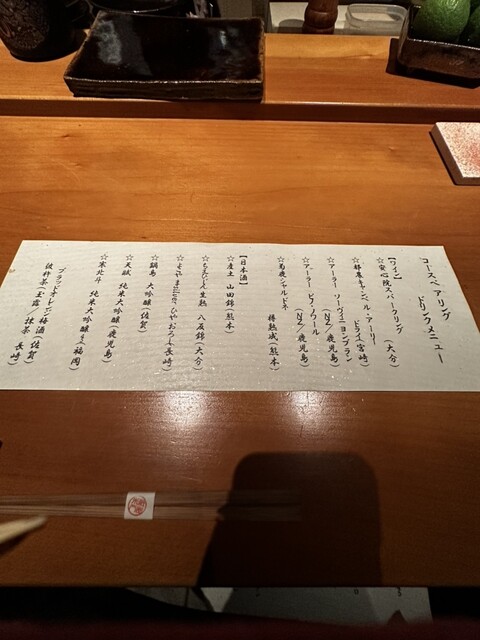 コースペアリング
ドリンクメニュー
【ワイン】
☆安心院スパークリング (大分)
☆都農キャンベル・アーリー
ドライ(宮崎)
☆アーラー ソーヴィニヨンブラン
(NZ/鹿児島)
☆アーラー ピノノワール
(NZ/鹿児島)
☆菊鹿シャルドネ
樽熟成(熊本)
【日本酒】
☆産土 山田錦(熊本)
☆ちえびじん生熟 八反錦(大分)
☆ひやおろし(長崎)
☆鍋島 大吟醸(佐賀)
☆天賦 純米大吟醸(鹿児島)
☆寒北斗 純米大吟醸(福岡)
ブラッドオレンジ梅酒(佐賀)
彼杵茶(玉露/抹茶 長崎)